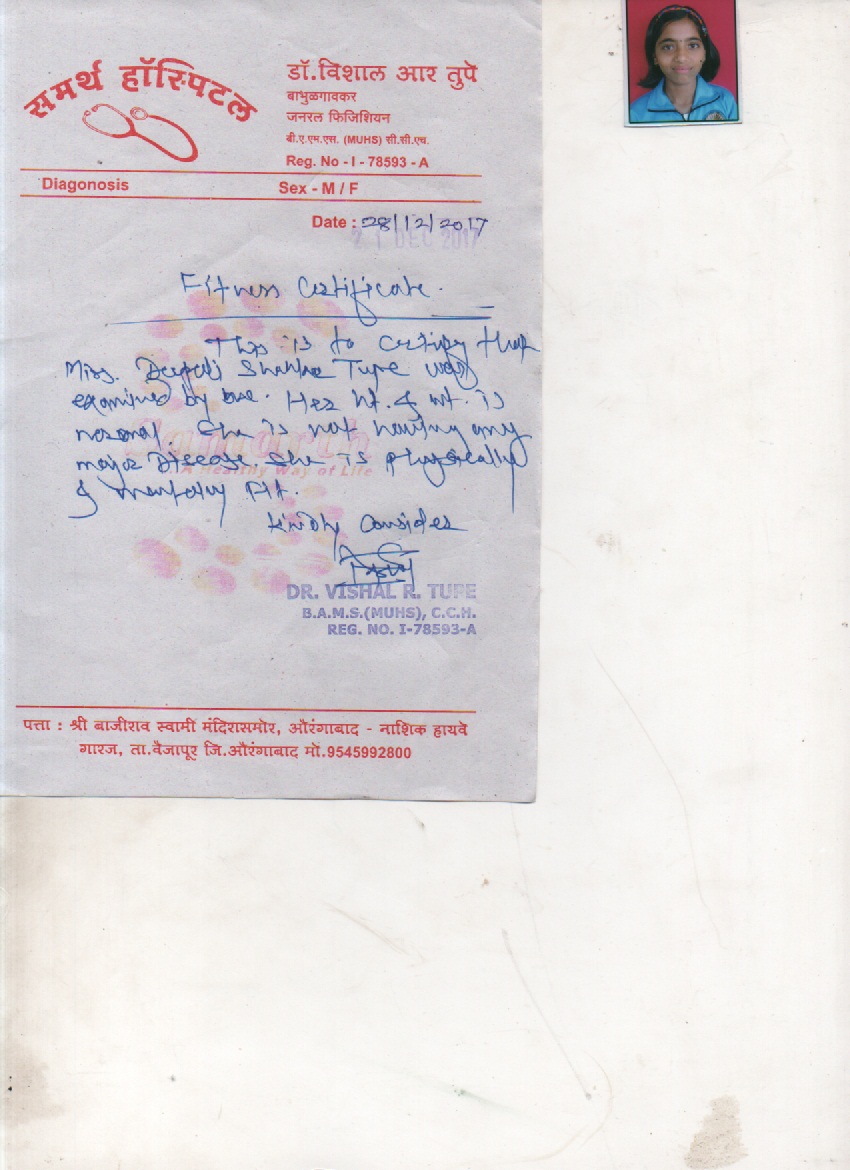 समर्थ हॉस्पिटल
डॉ.विशाल आर तुपे
बाभुळगावकर
जनरल फिजिशियन
बी.ए.एम.एस. (MUHS) सी.सी.एच.
Reg. No - I - 78593 - A
Diagonosis Sex - M / F
Date : 28/12/2017
21 DEC 2017
Fitness Certificate.
This is to certify that
Miss. Deepali Tupe was
examined by me. Her ht. & wt. is
normal. She is not having any
major Disease. She is physically
& mentally Fit.
Kindly Consider
Samarth
A Healthy Way of Life
DR. VISHAL R. TUPE
B.A.M.S.(MUHS), C.C.H.
REG. NO. I-78593-A
पत्ता : श्री बाजीराव स्वामी मंदिरासमोर, औरंगाबाद - नाशिक हायवे
गारज, ता.वैजापूर जि.औरंगाबाद मॉ.9545992800